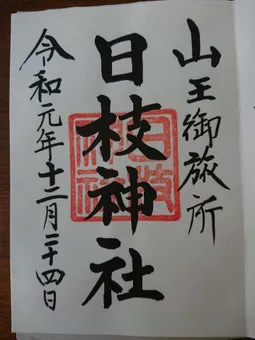 山王御旅所
日枝神社
令和元年十二月二十四日